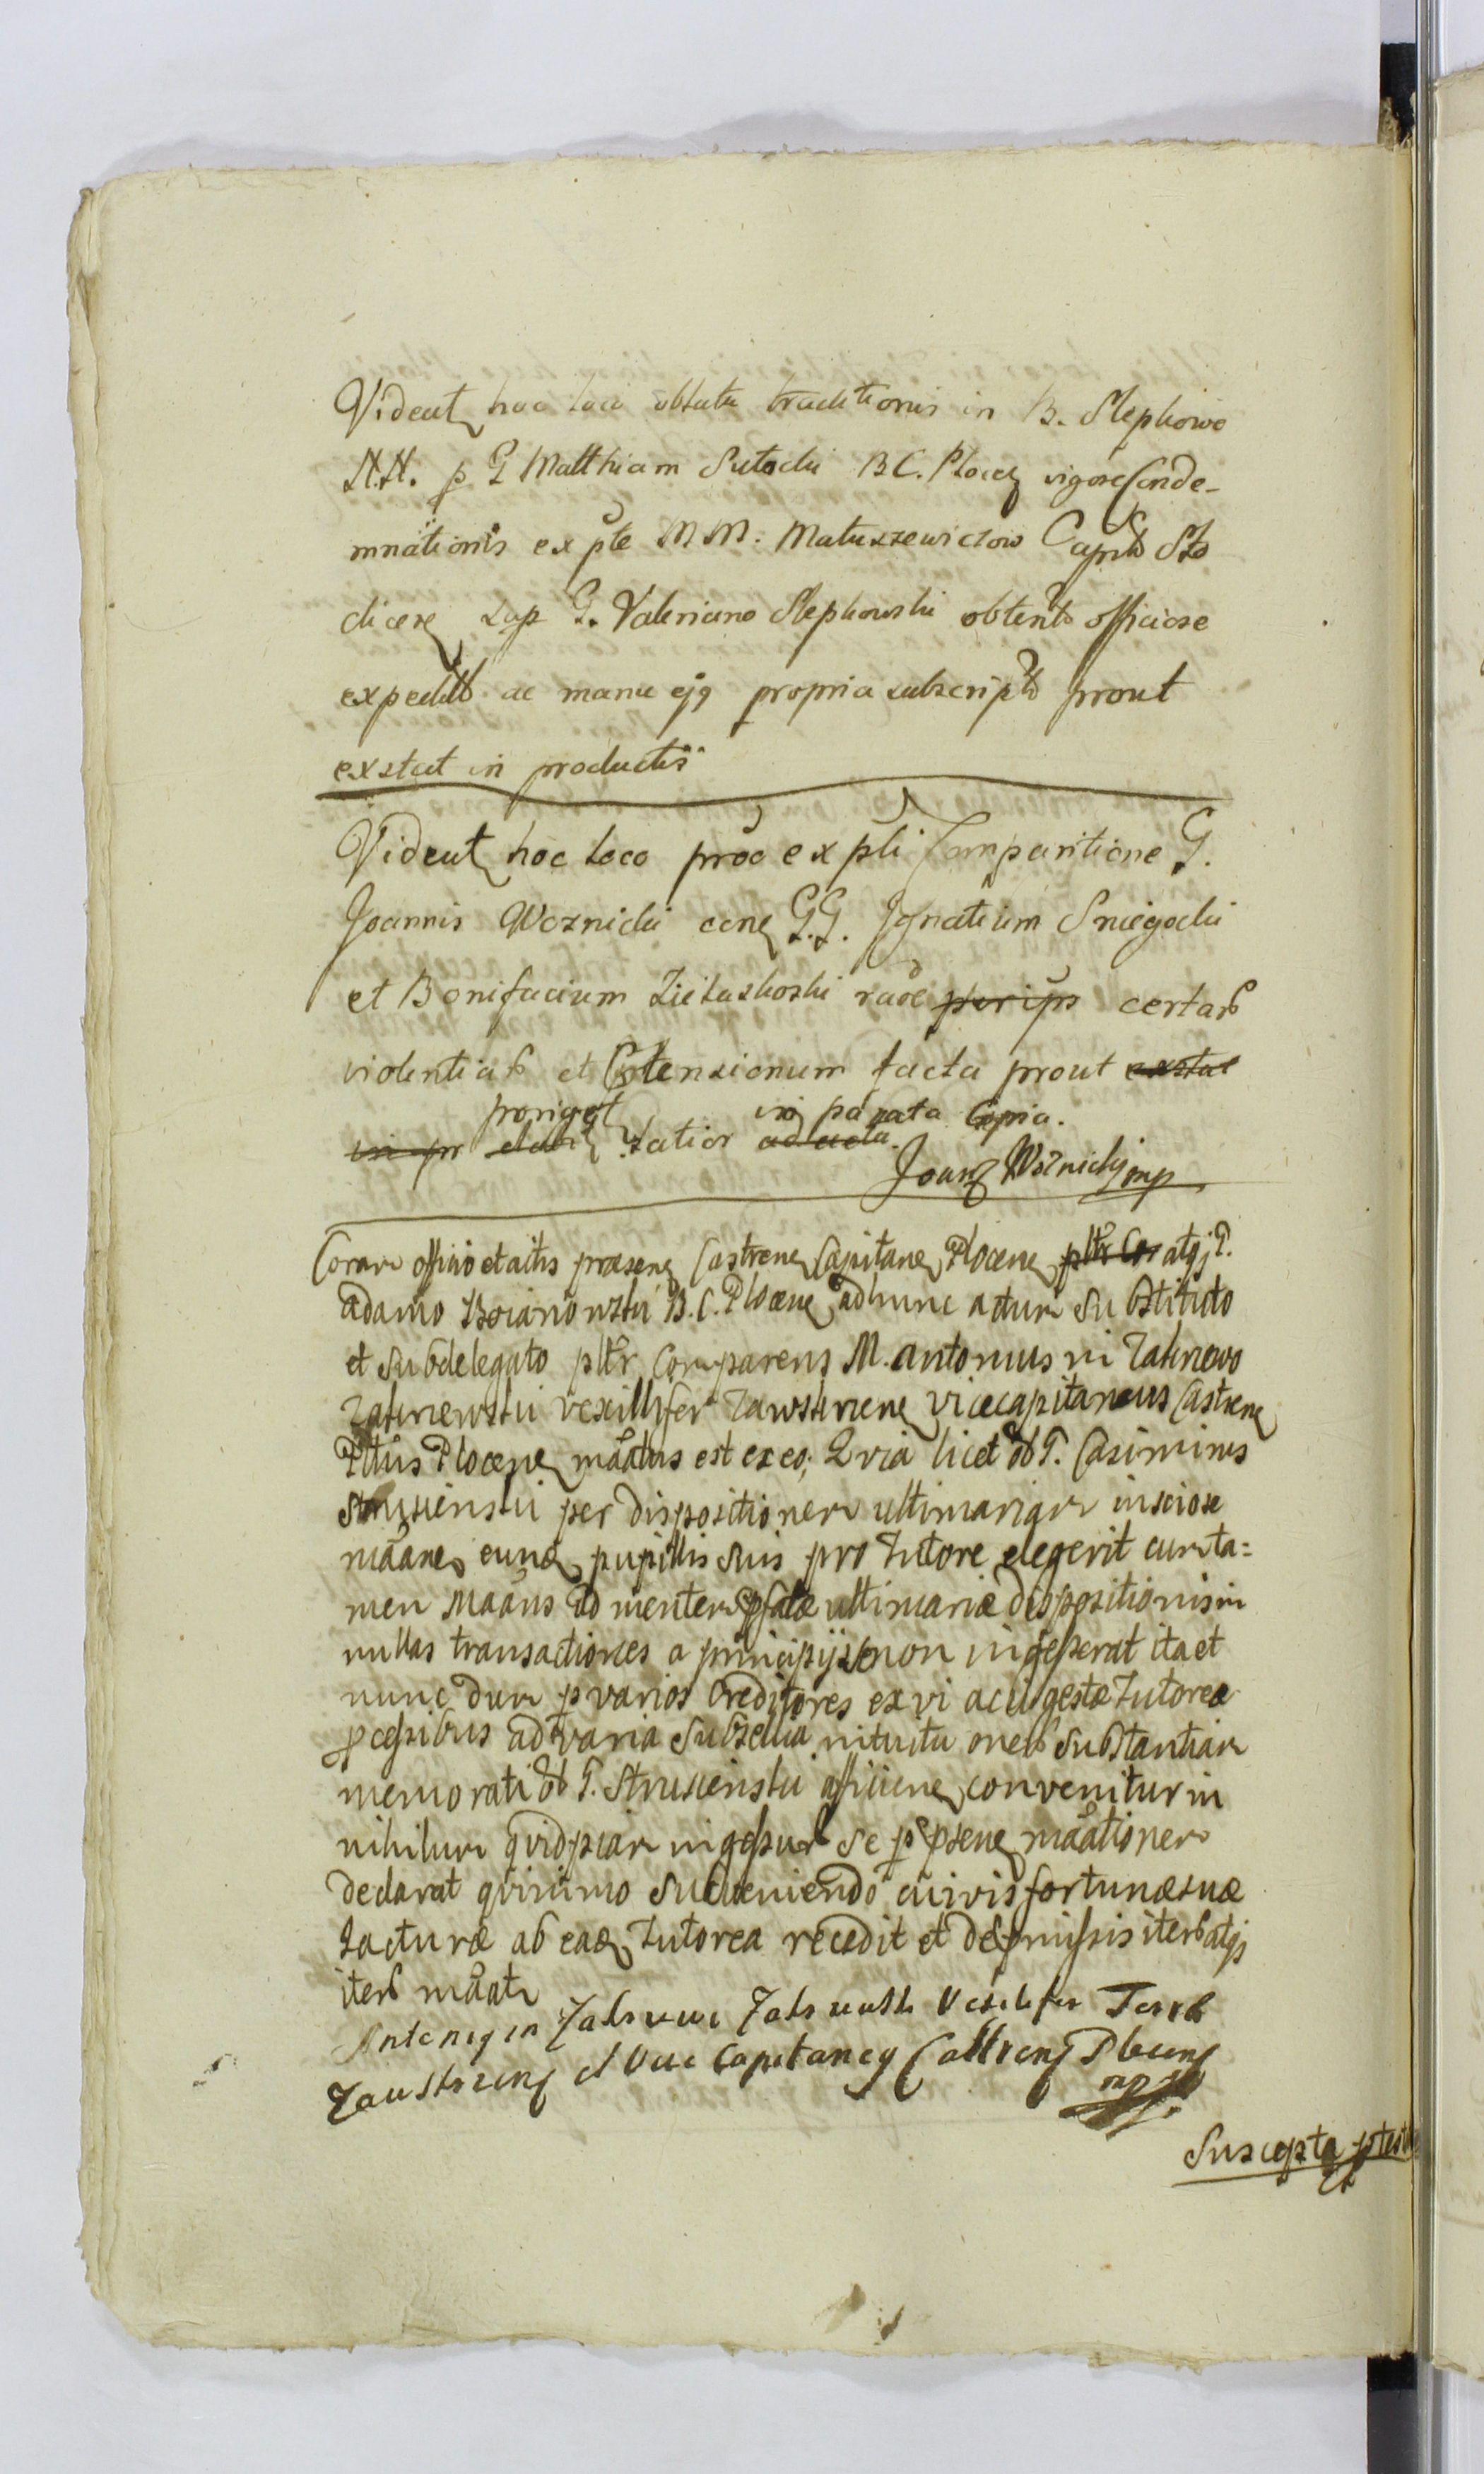 Videat hoc loco oblata traditionis in B. Slepkowo
N.N. p G Matthiam Sutocki B C. Plocen vigore Conde-
mnationis ex pte M M: Matuszewiczow Capit Sto
clicen sup G. Valeriano Slepkowski obtent officiose
expedit ac manu ejq propria subscript prout
exstat in productis
Videat hoc loco proc ex pli Comparitione G.
Joannis Woznicki cone G.G. Ignatium Sniegocki
et Bonifacium Zieluskoski raoe per ips certar
violentiar et Ptensionum facta prout exstat
poriget in parata Copia.
in pr dabit latior ad acta.
Joan Woznicki mp
Coram officio et actis praesen Castren Capitane Plocen pltr Cor atqj P.
Adamo Boianowski B. C. Plocen ad hunc actum Substituto
et Subdelegato pltr Comparens M. Antonius in Zalinewo
Zalinewski vexillifer Zawskrinen vicecapitaneus Castren
Pltus Plocen maatus est ex eo; Qvia licet ol G. Casimirus
Strusienski per dispositionem ultimariam insciose
maane eund pupillis suis pro Tutore elegerit cum ta=
men Maans ad mentem pfatae ultimariae dispositionis in
nullas transactiones a principijs non ingesserat ita et
nunc dum p varios Creditores ex vi acu gestae Tutorea
pcessibus ad varia Subsellia intuitu oner Substantiam
memorati ol G. Strusienski afficien convenitur in
nihilum qvidpiam ingessur se p psen maationem
declarat qvinimo Subveniendo cuivis fortunae suae
Jacturae ab ead Tutorea recedit et de pmissis iter atqj
iter maatr
Antonig in Zalinewo Zalinewski Vexilifer Terr
Zawskrzens et Vice Capitaneg Castrens Plocens
mp
Suscepta ptes